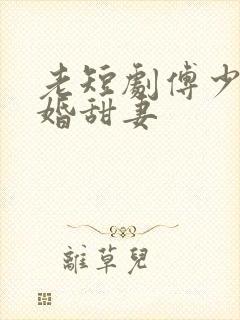 老短劇傅少
婚甜妻
離草兒